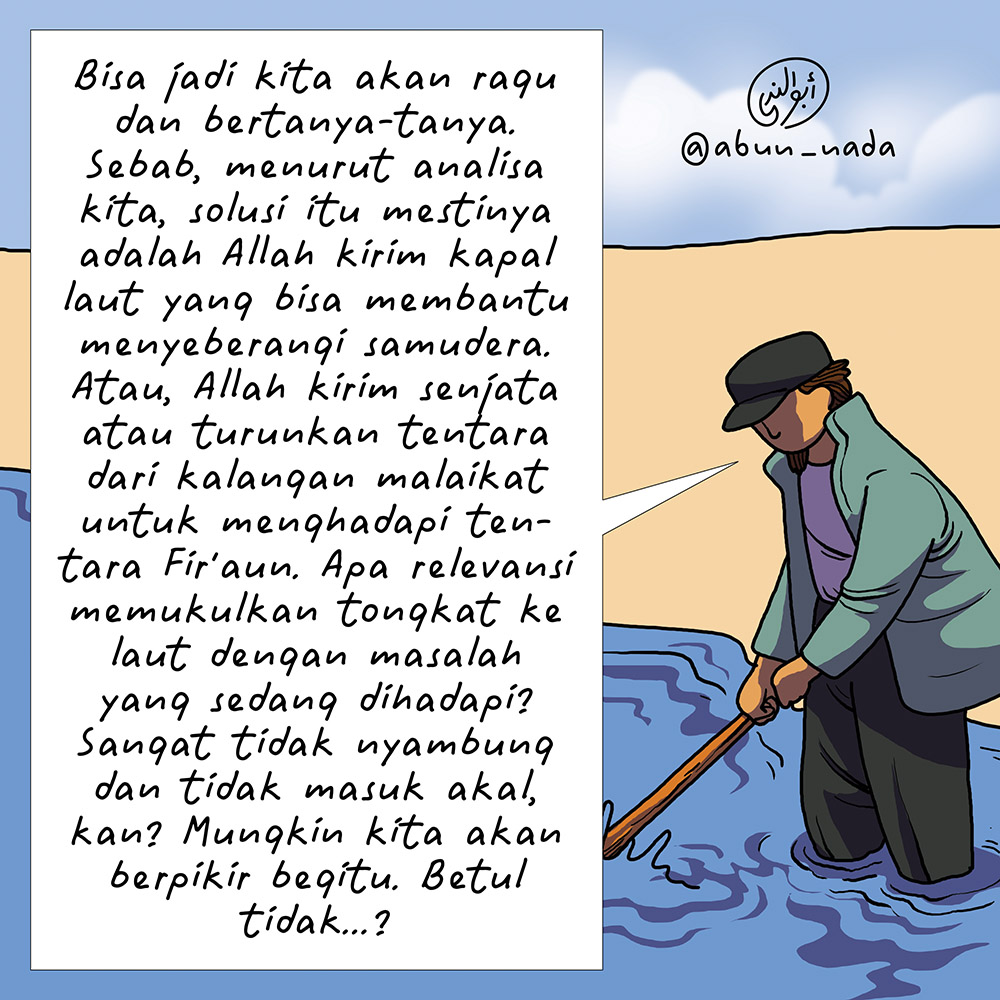 Bisa jadi kita akan ragu
dan bertanya-tanya.
Sebab, menurut analisa
kita, solusi itu mestinya
adalah Allah kirim kapal
laut yang bisa membantu
menyeberangi samudera.
Atau, Allah kirim senjata
atau turunkan tentara
dari kalangan malaikat
untuk menghadapi ten-
tara Fir'aun. Apa relevansi
memukulkan tongkat ke
laut dengan masalah
yang sedang dihadapi?
Sangat tidak nyambung
dan tidak masuk akal,
kan? Mungkin kita akan
berpikir begitu. Betul
tidak...?
أبو الندى
@abun_nada